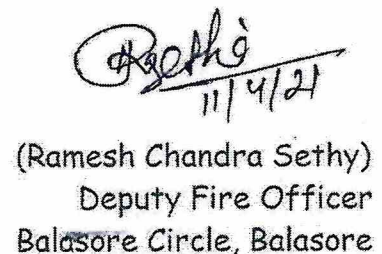 Rsethi
11/4/21
(Ramesh Chandra Sethy)
Deputy Fire Officer
Balasore Circle, Balasore